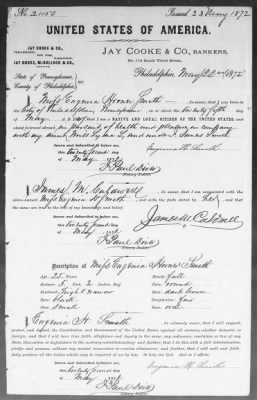 No. 21050
Issued 23 May 1872
UNITED STATES OF AMERICA.
JAY COOKE & CO.,
JAY COOKE, McCULLOCH & CO.,
JAY COOKE & CO., BANKERS,
No. 114 South Third Street,
Philadelphia, May 22nd 1872
State of Pennsylvania,
County of Philadelphia.
I, Miss Eugenia Horan Smith do swear, that I was born in the
City of Philadelphia Pennsylvania on or about the
May that I am a NATIVE AND LOYAL CITIZEN OF THE UNITED STATES, and
about to travel abroad in pursuit of health and pleasure in company
with my Aunt
Eugenia H. Smith
Sworn to and subscribed before me
this twenty second day
of May 1872
J. Paul Diver
I, James M. Caldwell do swear, that I am acquainted with the
above-named Miss Eugenia H. Smith and with the facts stated by her and that the same
are true to the best of my knowledge and belief.
James M. Caldwell
Sworn to and subscribed before me
this twenty second day
of May 1872
J. Paul Diver
Description of Miss Eugenia Horan Smith
Age: 25 Years
Face: Full
Stature: 5 Feet 2 Inches Eng.
Chin: round
Forehead: high & narrow
Hair: dark brown
Eyes: black
Complexion: fair
Nose: small
Face: oval
I, Eugenia H. Smith do solemnly swear that I will support,
protect, and defend the Constitution and Government of the United States against all enemies, whether domestic or
foreign; and that I will bear true faith, allegiance and loyalty to the same, any ordinance, resolution or law of any
State Convention or Legislature to the contrary notwithstanding; and further, that I do this with a full determination,
pledge and purpose, without any mental reservation or evasion whatsoever; and further, that I will well and faithfully
perform all the duties which may be required of me by law. So help me God.
Eugenia H. Smith
Sworn to and subscribed before me
this twenty second day
of May 1872
J. Paul Diver
Notary Public